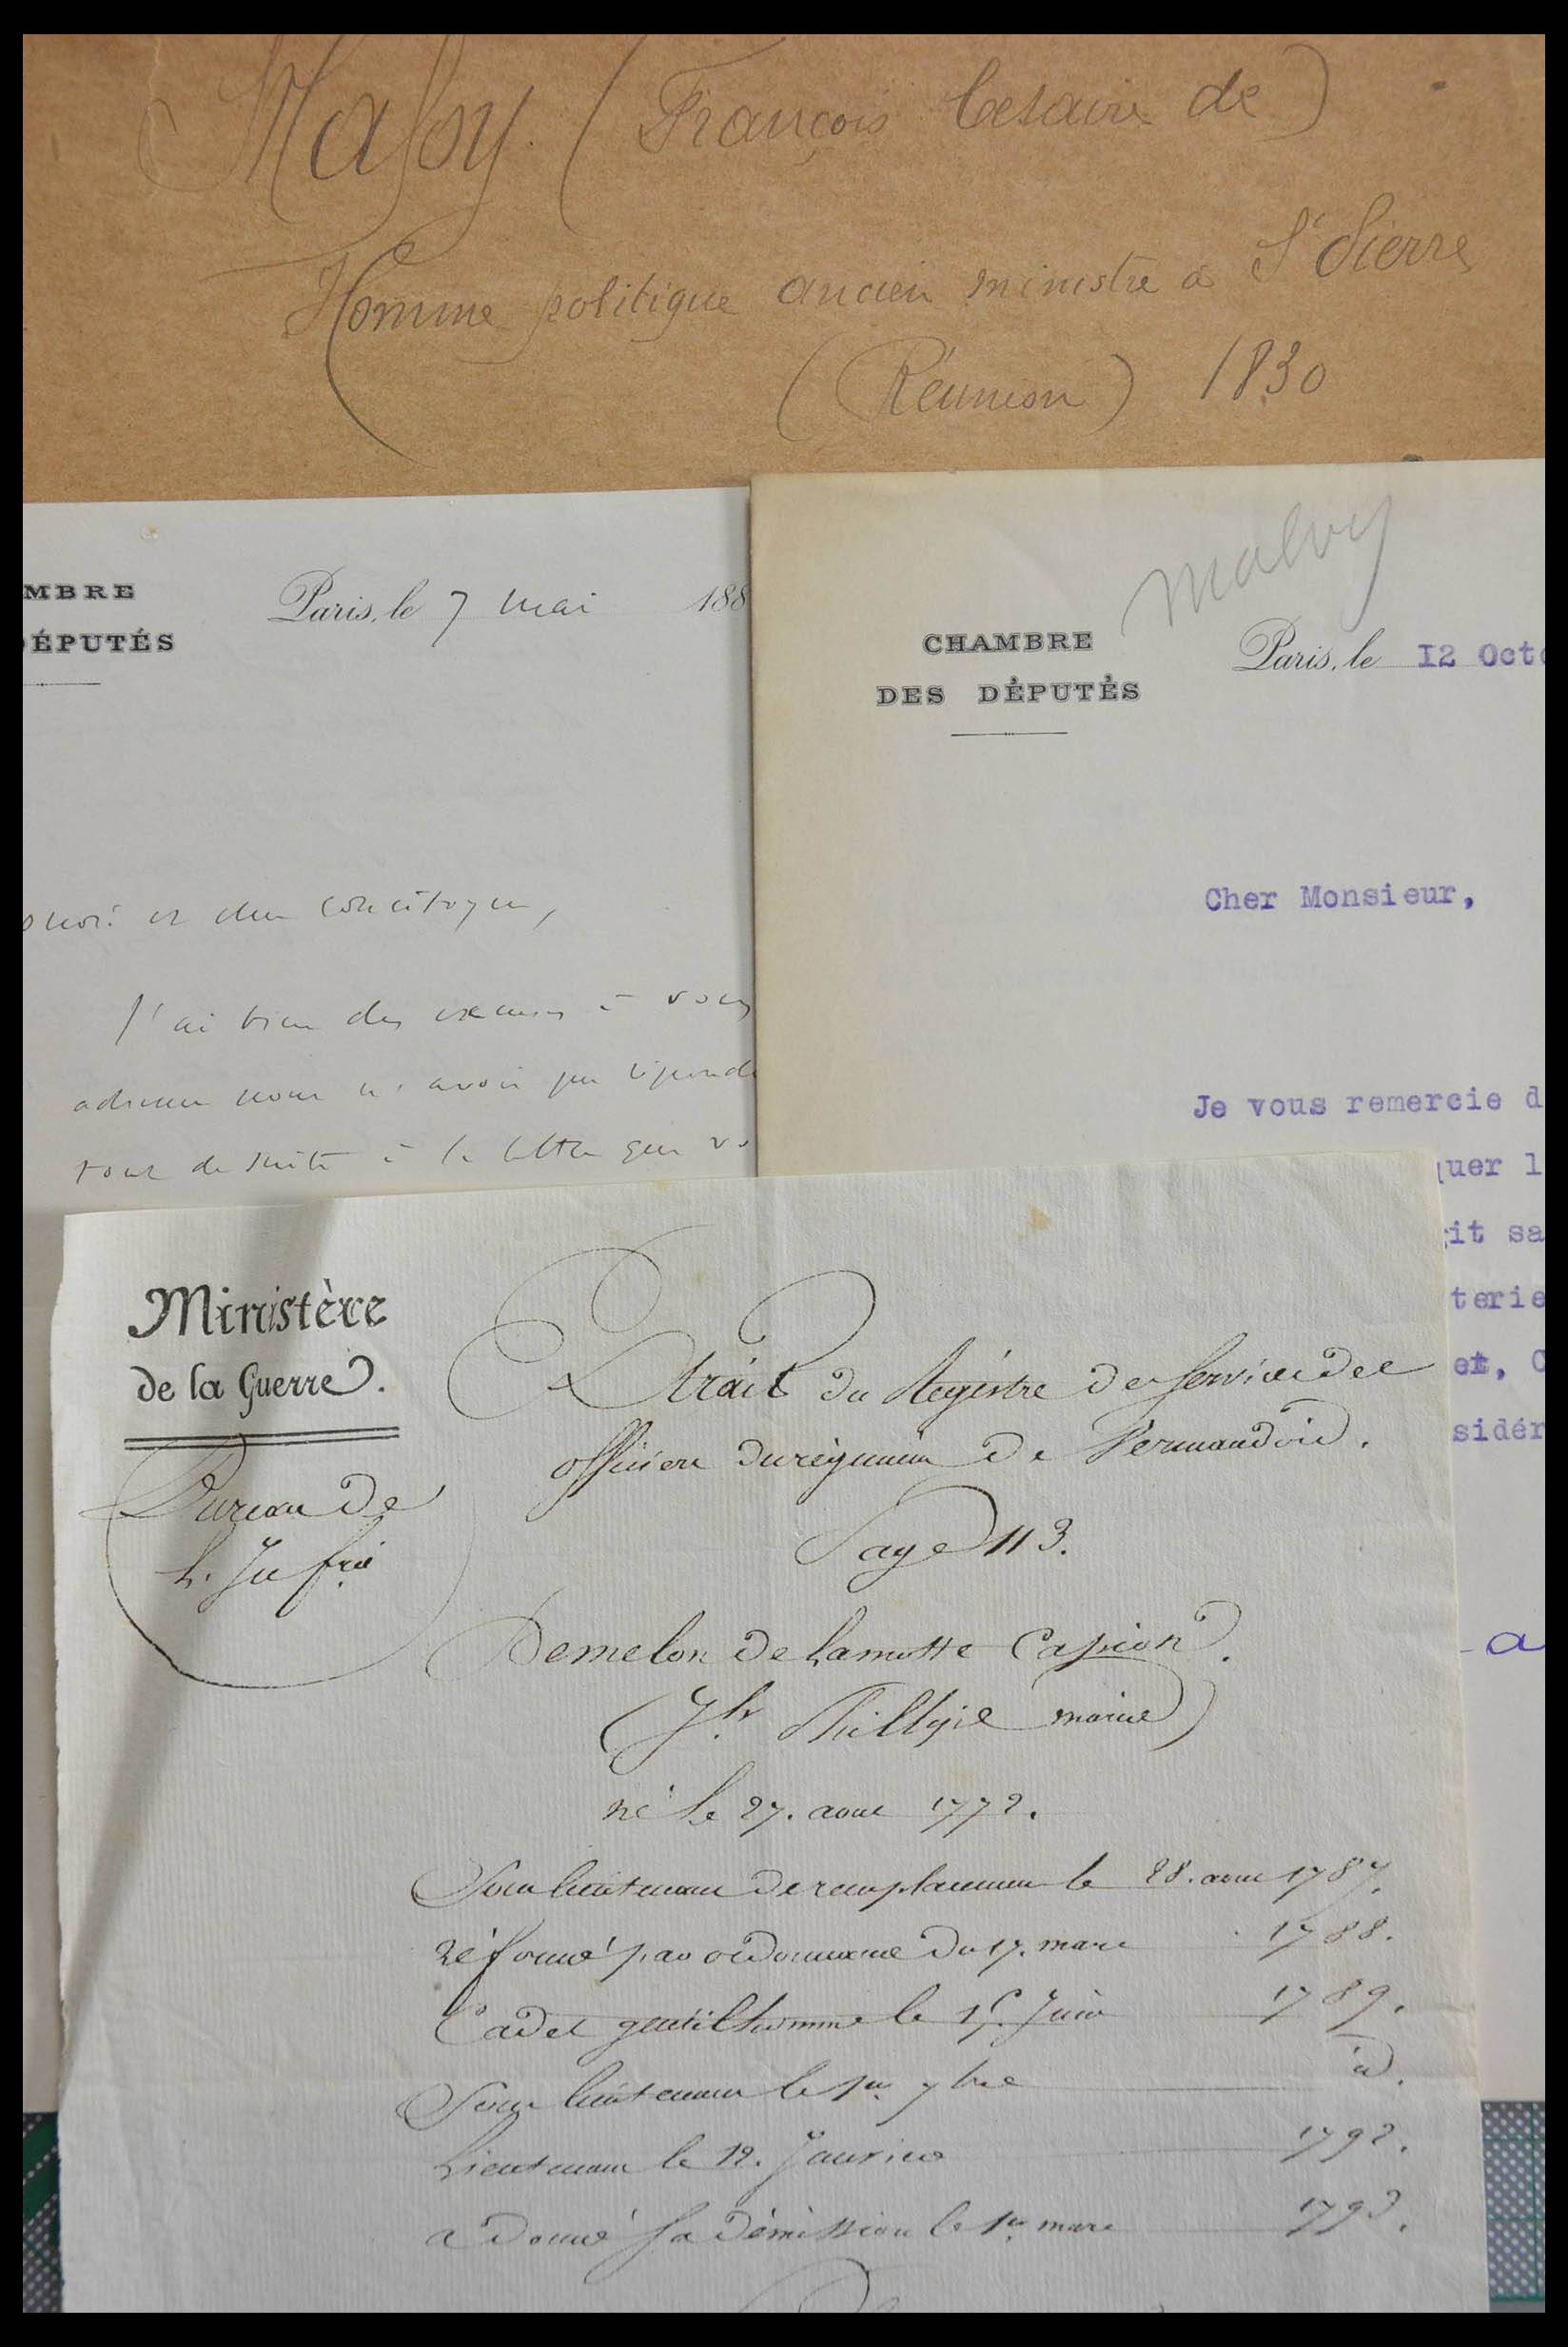 Mahy (François Cesaire de)
Homme politique ancien ministre à St Pierre
(Réunion) 1830
MBRE
DÉPUTÉS
Paris, le 7 mai 188
et cher concitoyen,
J'ai bien des excuses à vous
adresser pour n'avoir pu répond
tout de suite à la lettre que vo
malvy
CHAMBRE
DES DÉPUTÉS
Paris, le 12 Octo
Cher Monsieur,
Je vous remercie d
quer l
git sa
terie
et, C
sidér
a
Ministère
de la Guerre.
Bureau de
l'Inf.rie
Extrait du Registre de Service des
officiers du régiment de Vermandois.
Page 113.
Demelon de Lamotte Capion.
(Jh. Phillipe marie)
né le 27. aout 1772.
Sous lieutenant de remplacement le 28. aout 1787.
réformé par ordonnance du 17. mars 1788.
Cadet gentilhomme le 1er. Juin 1789.
Sous lieutenant le 1er 7bre id.
Lieutenant le 12. Janvier 1792.
a donné sa démission le 1er mars 1793.